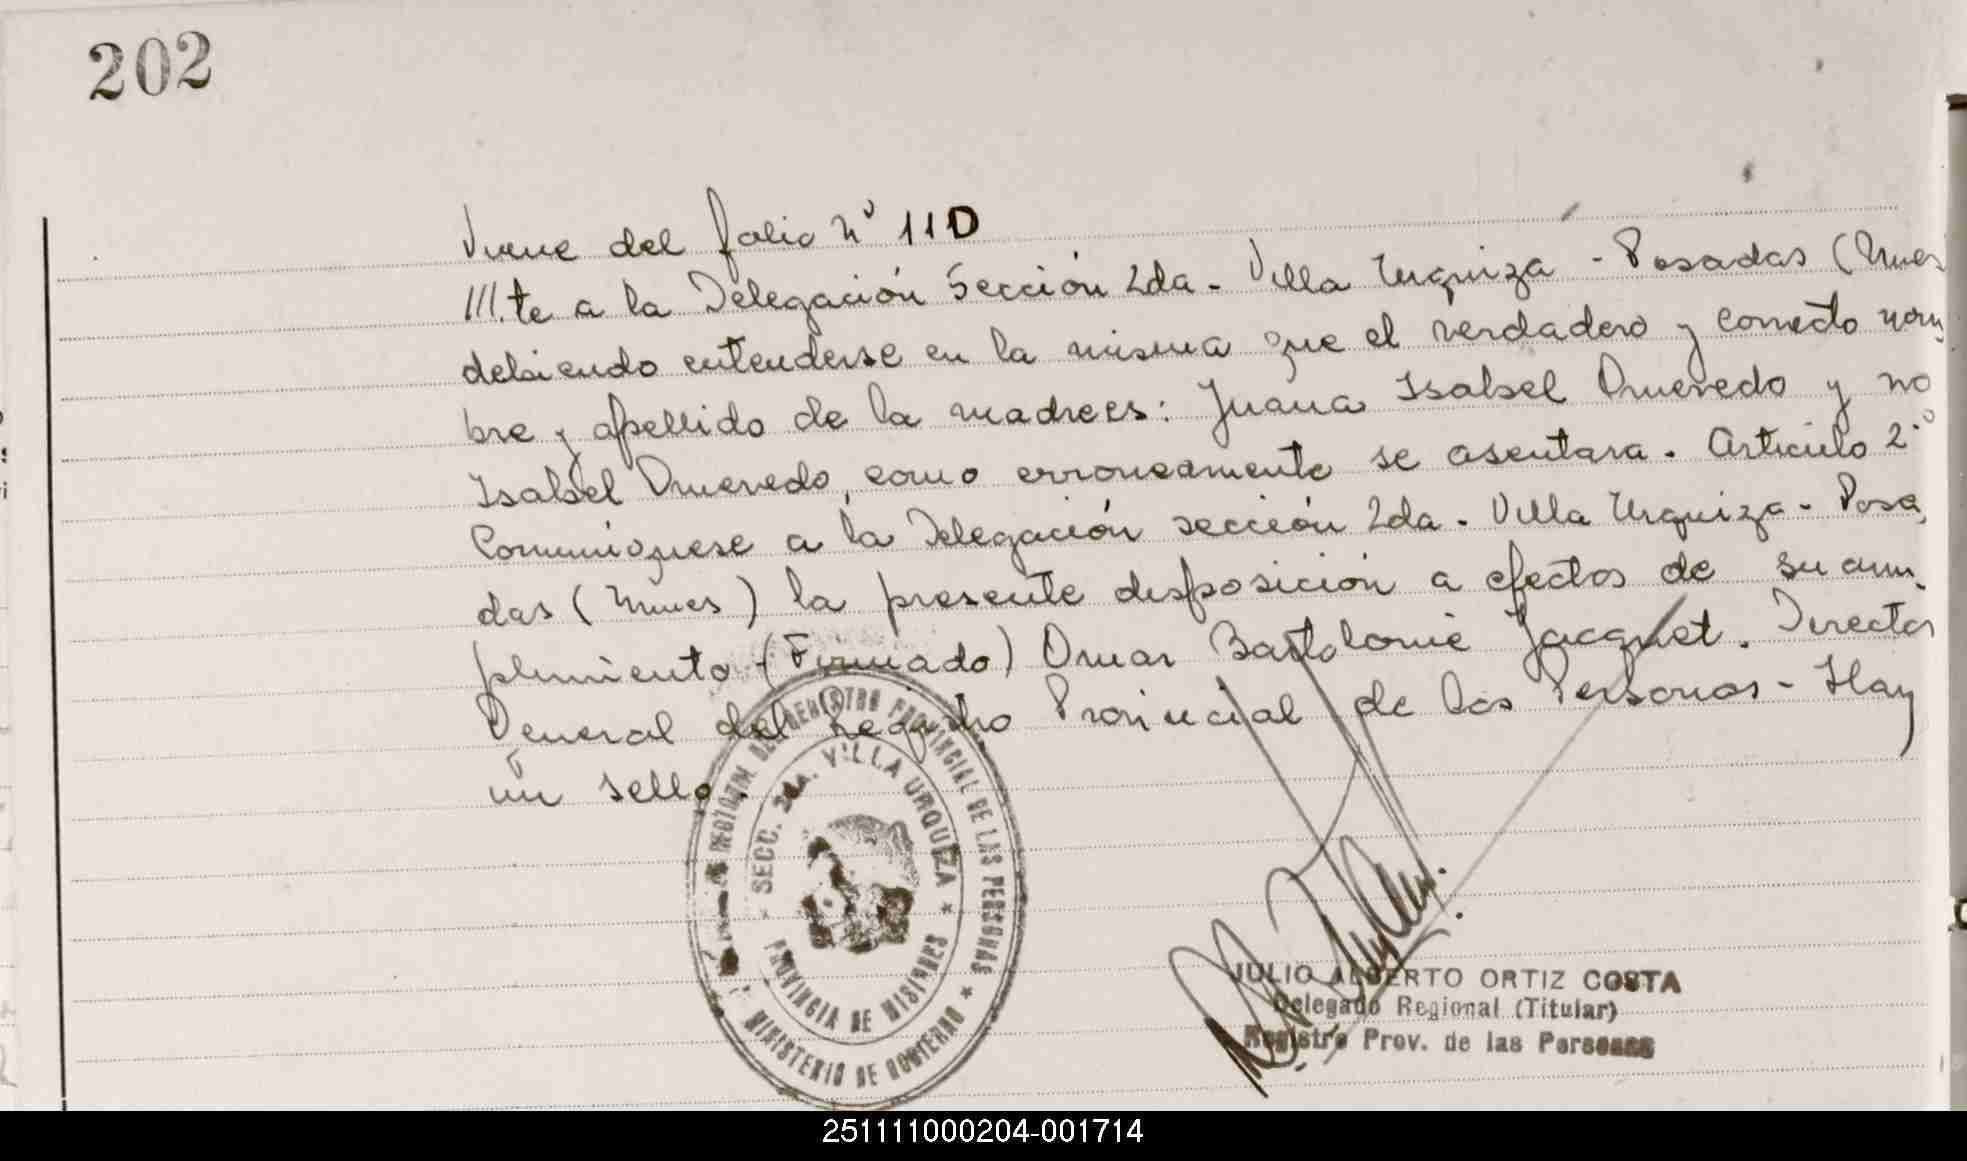 202
Viene del folio Nº 110
///.te a la Delegación Sección 2da. Villa Urquiza - Posadas (Mnes
debiendo entenderse en la misma que el verdadero y correcto nom
bre y apellido de la madre es: Juana Isabel Quevedo y no
Isabel Quevedo, como erroneamente se asentara. Articulo 2º
Comuníquese a la Delegación sección 2da. Villa Urquiza - Posa
das (Mnes) la presente disposición a efectos de su cum
plimiento - (Firmado) Omar Bartolomé Jacquet. Director
General del Registro Provincial de las Personas - Hay
un sello.
REGISTRO PROVINCIAL DE LAS PERSONAS
SECC. 2da. VILLA URQUIZA
PROVINCIA DE MISIONES
MINISTERIO DE GOBIERNO
JULIO ALBERTO ORTIZ COSTA
Delegado Regional (Titular)
Registro Prov. de las Personas
251111000204-001714